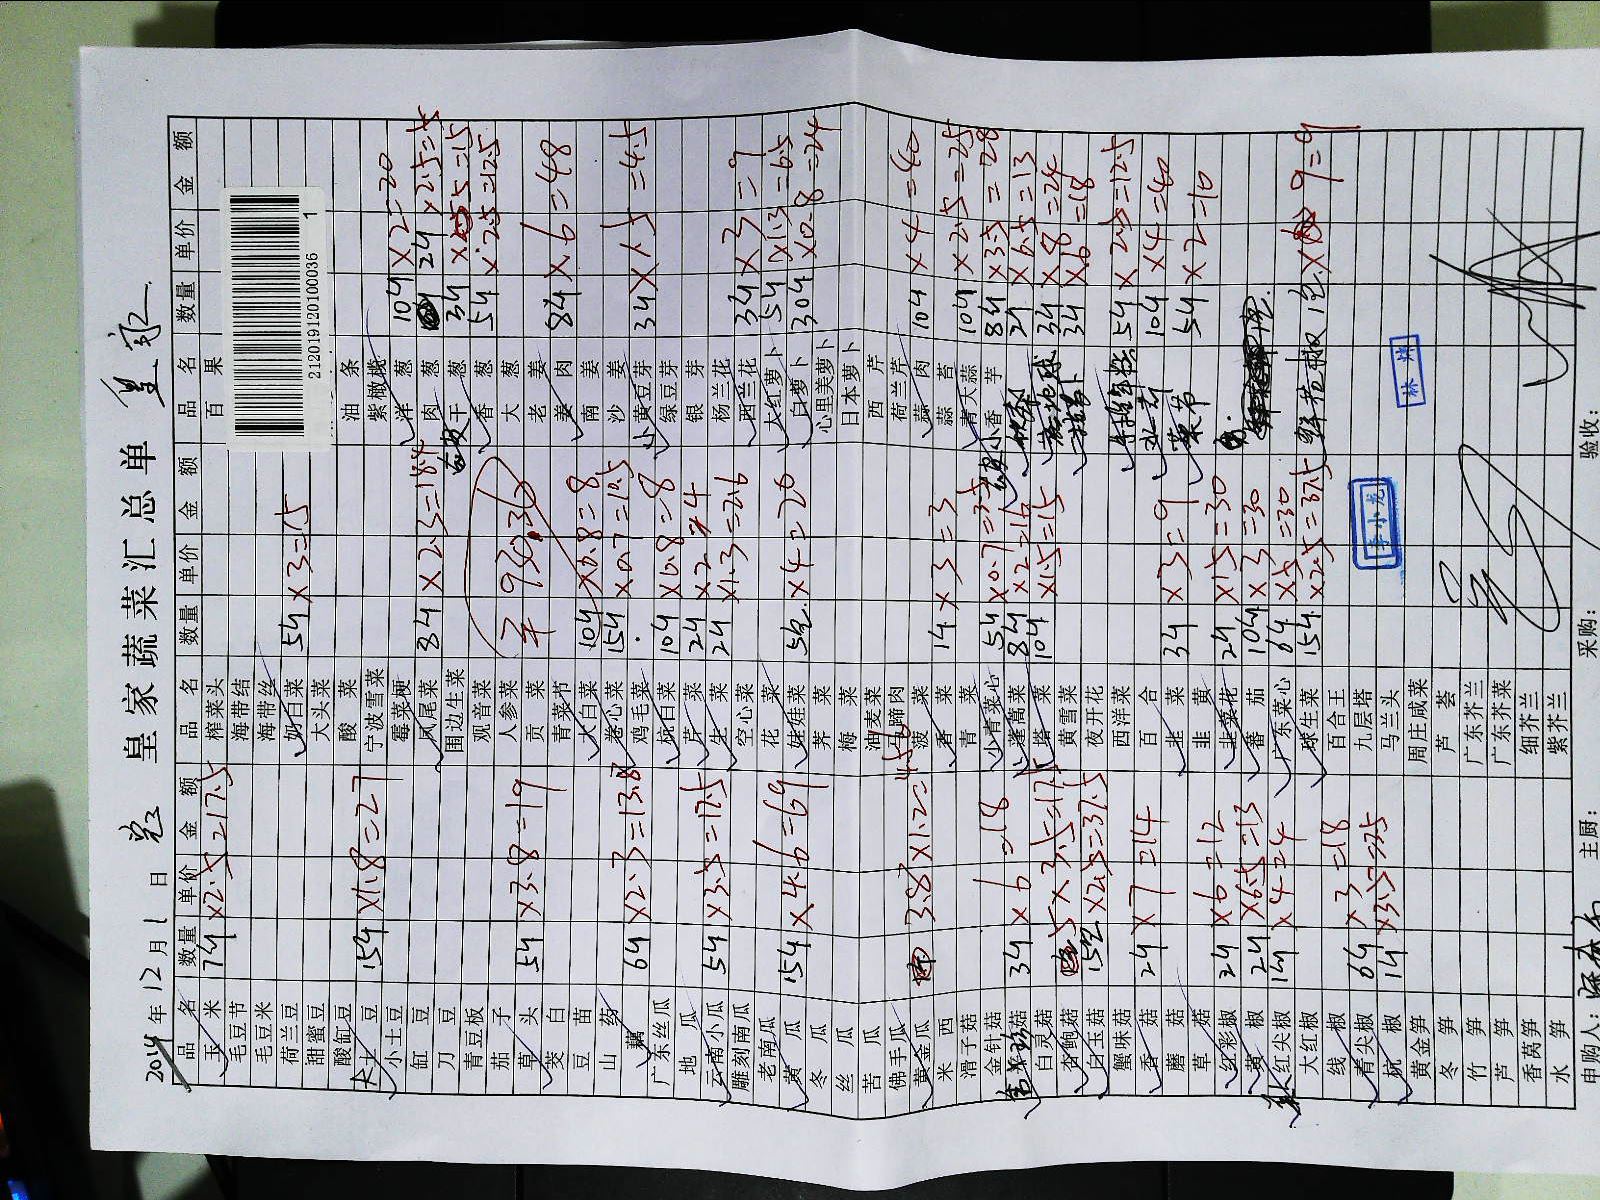 皇家蔬菜汇总单
2014年12月1日
品名 数量 单价 金额 品名 数量 单价 金额 品名 数量 单价 金额
玉米 7斤 ×2.5=17.5 榨菜头 百果
毛豆节 海带结
毛豆米 海带丝
荷兰豆 奶白菜 5斤 ×3=15
甜蜜豆 大头菜
酸缸豆 酸菜 油条
土豆 15斤 ×1.8=27 宁波雪菜 紫橄榄
小土豆 霉菜梗 洋葱 10斤 ×2=20
缸豆 凤尾菜 8斤 ×2.3=18.4 肉葱 2斤 ×2.5=5
刀豆 围边生菜 干葱 3斤 ×5=15
青豆板 观音菜 香葱 5斤 ×2.5=12.5
茄子 人参菜 大葱
草头 5斤 ×3.8=19 贡菜 老姜
茭白 青菜节 姜肉 8斤 ×6=48
豆苗 大白菜 10斤 ×0.8=8 南姜
山药 卷心菜 15斤 ×0.7=10.5 沙姜
藕 6斤 ×2.3=13.8 鸡毛菜 小黄豆芽 3斤 ×1.5=4.5
广东丝瓜 杭白菜 10斤 ×0.8=8 绿豆芽
地瓜 芹菜 2斤 ×2=4 银芽
云南小瓜 5斤 ×3.5=17.5 生菜 2斤 ×1.3=2.6 杨兰花
雕刻南瓜 空心菜 西兰花 3斤 ×3=9
老南瓜 花菜 大红萝卜 5斤 ×1.3=6.5
黄瓜 15斤 ×4.6=69 娃娃菜 5包 ×4=20 白萝卜 30斤 ×0.8=24
冬瓜 荠菜 心里美萝卜
丝瓜 梅菜 日本萝卜
苦瓜 油麦菜 西芹
佛手瓜 马蹄肉 荷兰芹
黄金瓜 3.8 ×1.2= 菠菜 蒜肉 10斤 ×4=40
米西 香菜 1斤 ×3=3 蒜苔
滑子菇 青菜 青大蒜 10斤 ×2.5=25
金针菇 小青菜心 5斤 ×0.7=3.5 小香芋 8斤 ×3.5=28
菇 3斤 ×6=18 蓬蒿菜 8斤 ×2=16 2斤 ×6.5=13
白灵菇 塔菜 10斤 ×1.5=15 3斤 ×8=24
杏鲍菇 5 ×3.5=17.5 黄雪菜 3斤 ×6=18
白玉菇 15包 ×2.5=37.5 夜开花
蟹味菇 西洋菜 5斤 ×2.5=12.5
香菇 2斤 ×7=14 百合 10斤 ×4=40
蘑菇 韭菜 3斤 ×3=9 5斤 ×2=10
草菇 韭黄
红彩椒 2斤 ×6=12 韭菜花 2斤 ×15=30
黄椒 2斤 ×6.5=13 番茄 10斤 ×3=30
红尖椒 1斤 ×4=4 广东菜心 6斤 ×5=30
大红椒 球生菜 15斤 ×2.5=37.5 1包 × 9=9
线椒 百合王
青尖椒 6斤 ×3=18 九层塔
杭椒 1斤 ×3.5=3.5 马兰头
黄金笋 周庄咸菜
冬笋 芦荟
竹笋 广东芥兰
芦笋 广东芥菜
香莴笋 细芥兰
水笋 紫芥兰
930.30
2120191201000361
李小龙
申购人: 主厨: 采购: 验收: